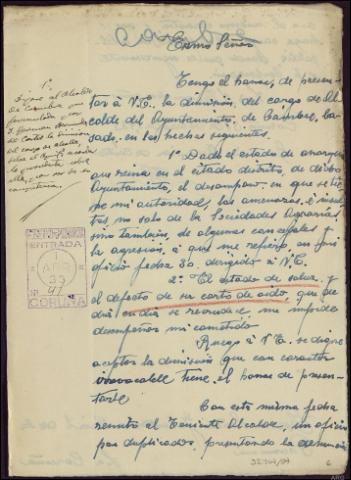 Cambre
Exmo Señor
Tengo el honor, de presen-
tar á V.E. la dimisión, del cargo de Al-
calde del Ayuntamiento, de Cambre, ba-
sado, en los hechos siguientes.
1º Dado el estado de anarquia
que reina en el estado distrito, de dicho
Ayuntamiento, el desamparo, en que se tie-
ne mi autoridad, las amenazas é insul-
tos no solo de las Sociedades Agrarias,
sino también, de algunos concejales y
la agresión, á que me refiero, en mi
oficio fecha 30 dirigido á V.E.
2º El estado de salud, y
el defecto de ser corto de oido, que de
dia en dia se recrudece, me impide
desempeñar mi cometido.
Ruego á V.E. se digne
aceptar la dimisión que con caracter
irrevocable tiene, el honor de presen-
tarle
Con esta misma fecha
remito al Teniente Alcalde, un oficio
por duplicado, presentando la dimisión
1º
Dígase al Alcalde
de Cambre que
formulada por
la dimisión
del cargo de alcalde,
ENTRADA
1
ABR
35
Nº 47
CORUÑA
6
ARG